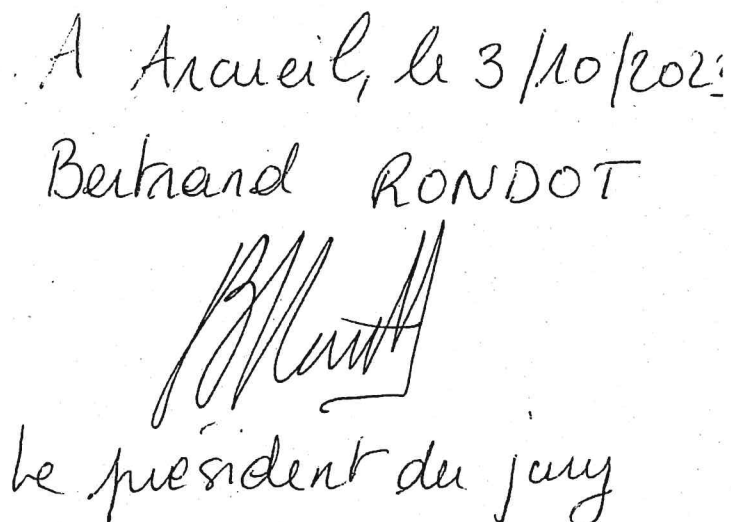 A Arcueil, le 3/10/202
Bertrand RONDOT
Le président du jury